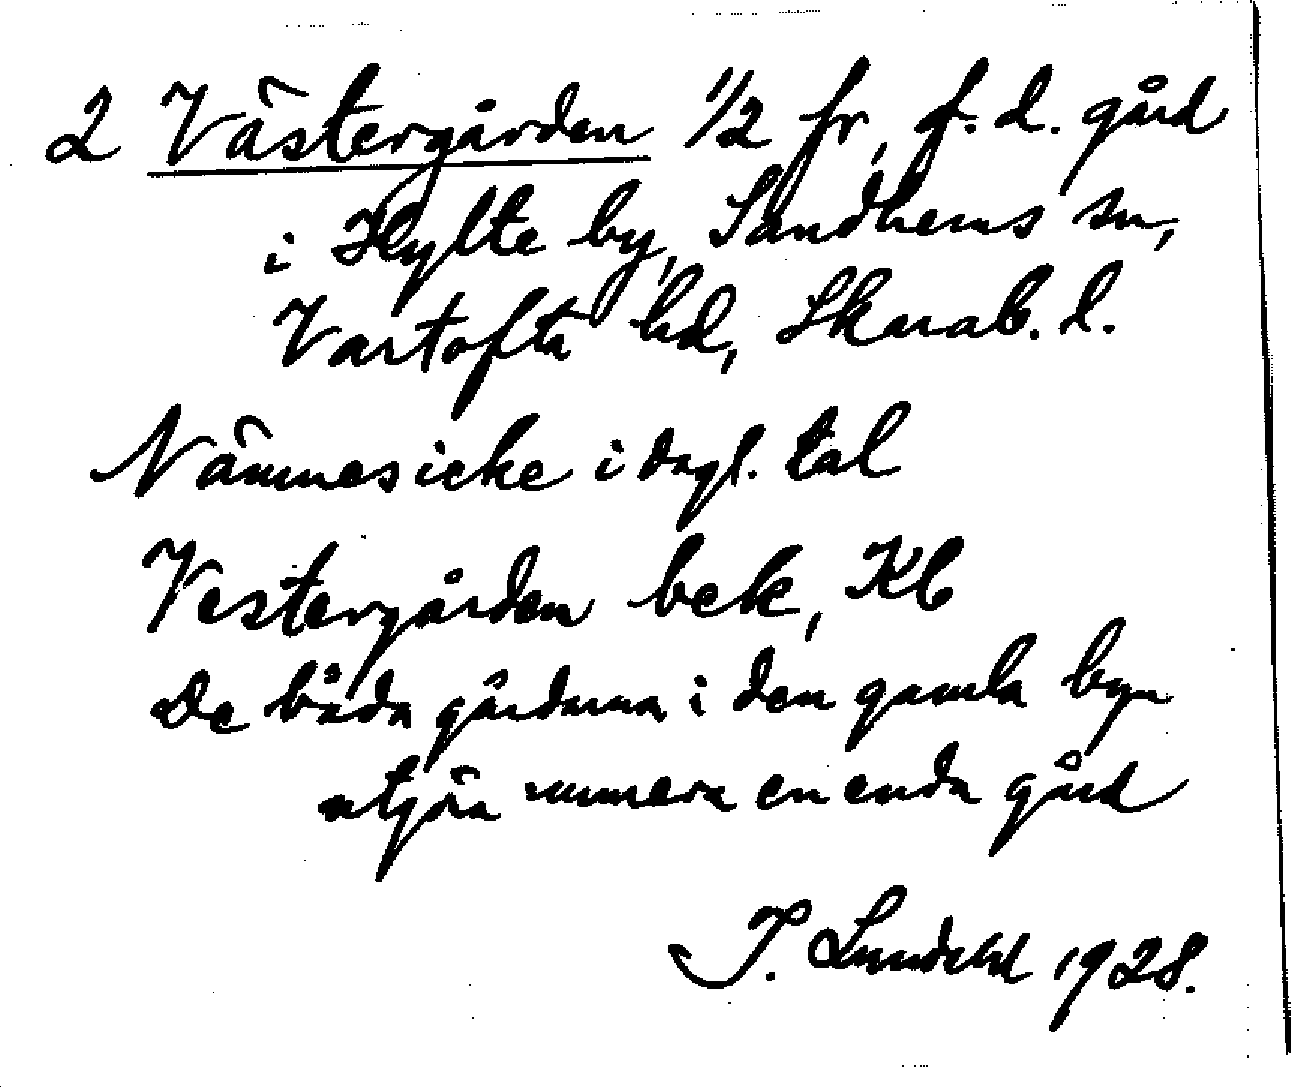 2 Västergården 1/2 fr, f.d. gård
i Hylte by, Sandhems sn,
Vartofta hd, Skarab. l.
Nämnes icke i dagl. tal
Vestergården bek, Kb
De båda gårdarna i den gamla byn
utgöra numera en enda gård
I. Lundahl 1928.